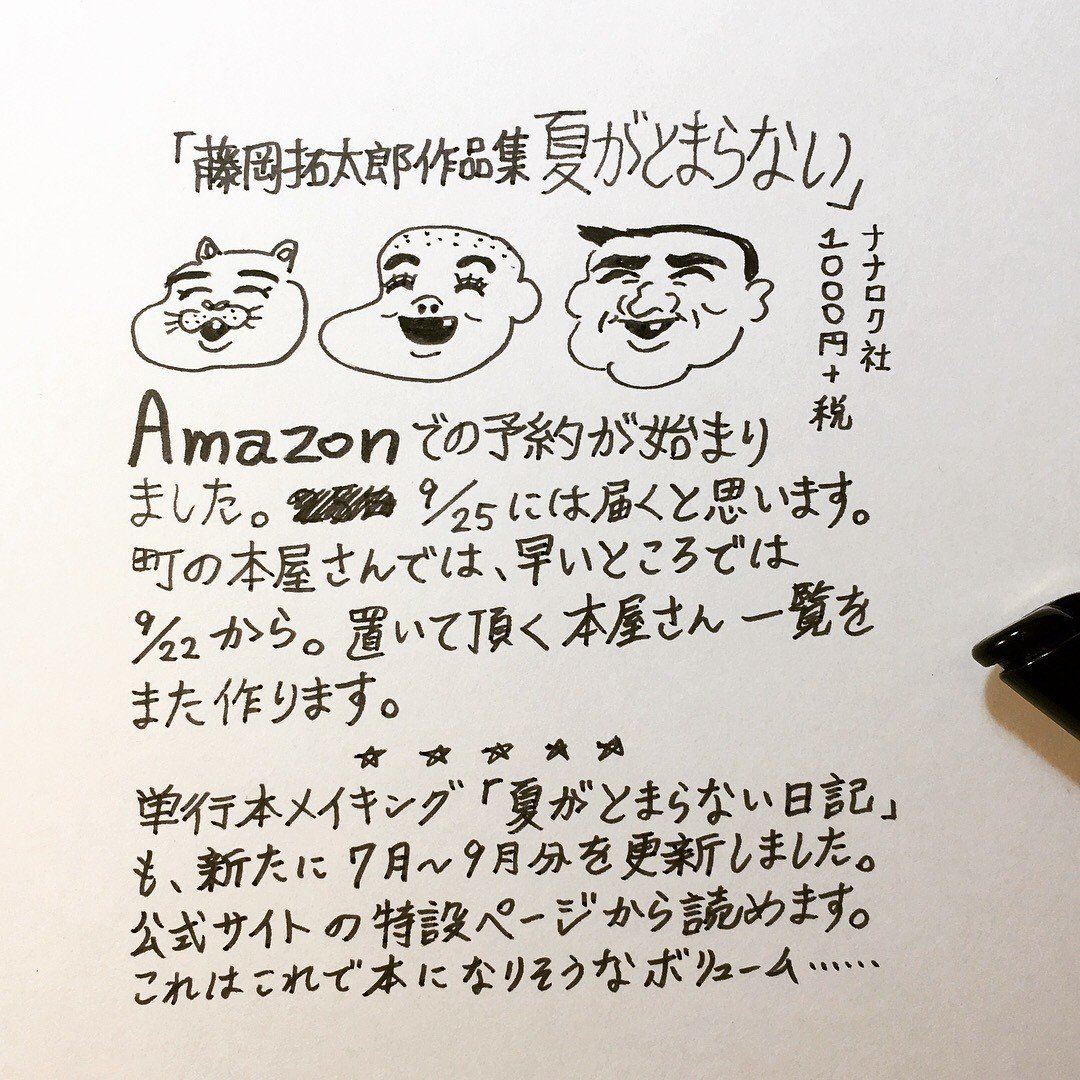 「藤岡拓太郎作品集 夏がとまらない」
ナナロク社
1000円+税
Amazonでの予約が始まり
ました。 9/25には届くと思います。
町の本屋さんでは、早いところでは
9/22から。置いて頂く本屋さん一覧を
また作ります。
☆ ☆ ☆ ☆ ☆
単行本メイキング「夏がとまらない日記」
も、新たに7月〜9月分を更新しました。
公式サイトの特設ページから読めます。
これはこれで本になりそうなボリューム……